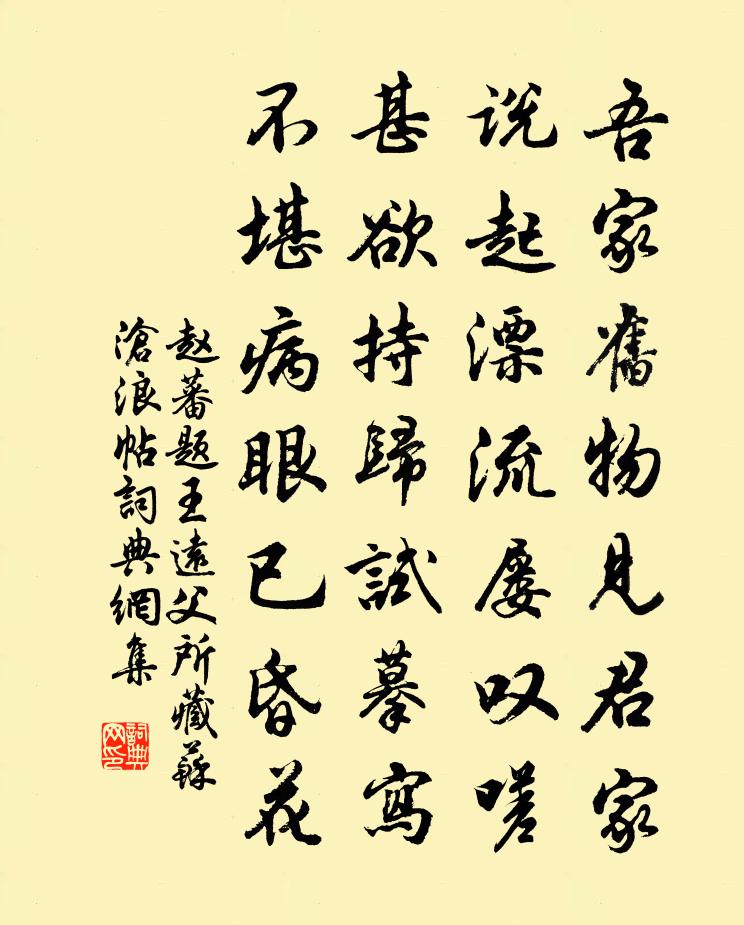 吾家舊物見君家
说起漂流屡叹嗟
甚欲持歸試摹寫
不堪病眼已昏花
赵蕃题王遠父所藏蘇
滄浪帖詞典網集
詞典网印